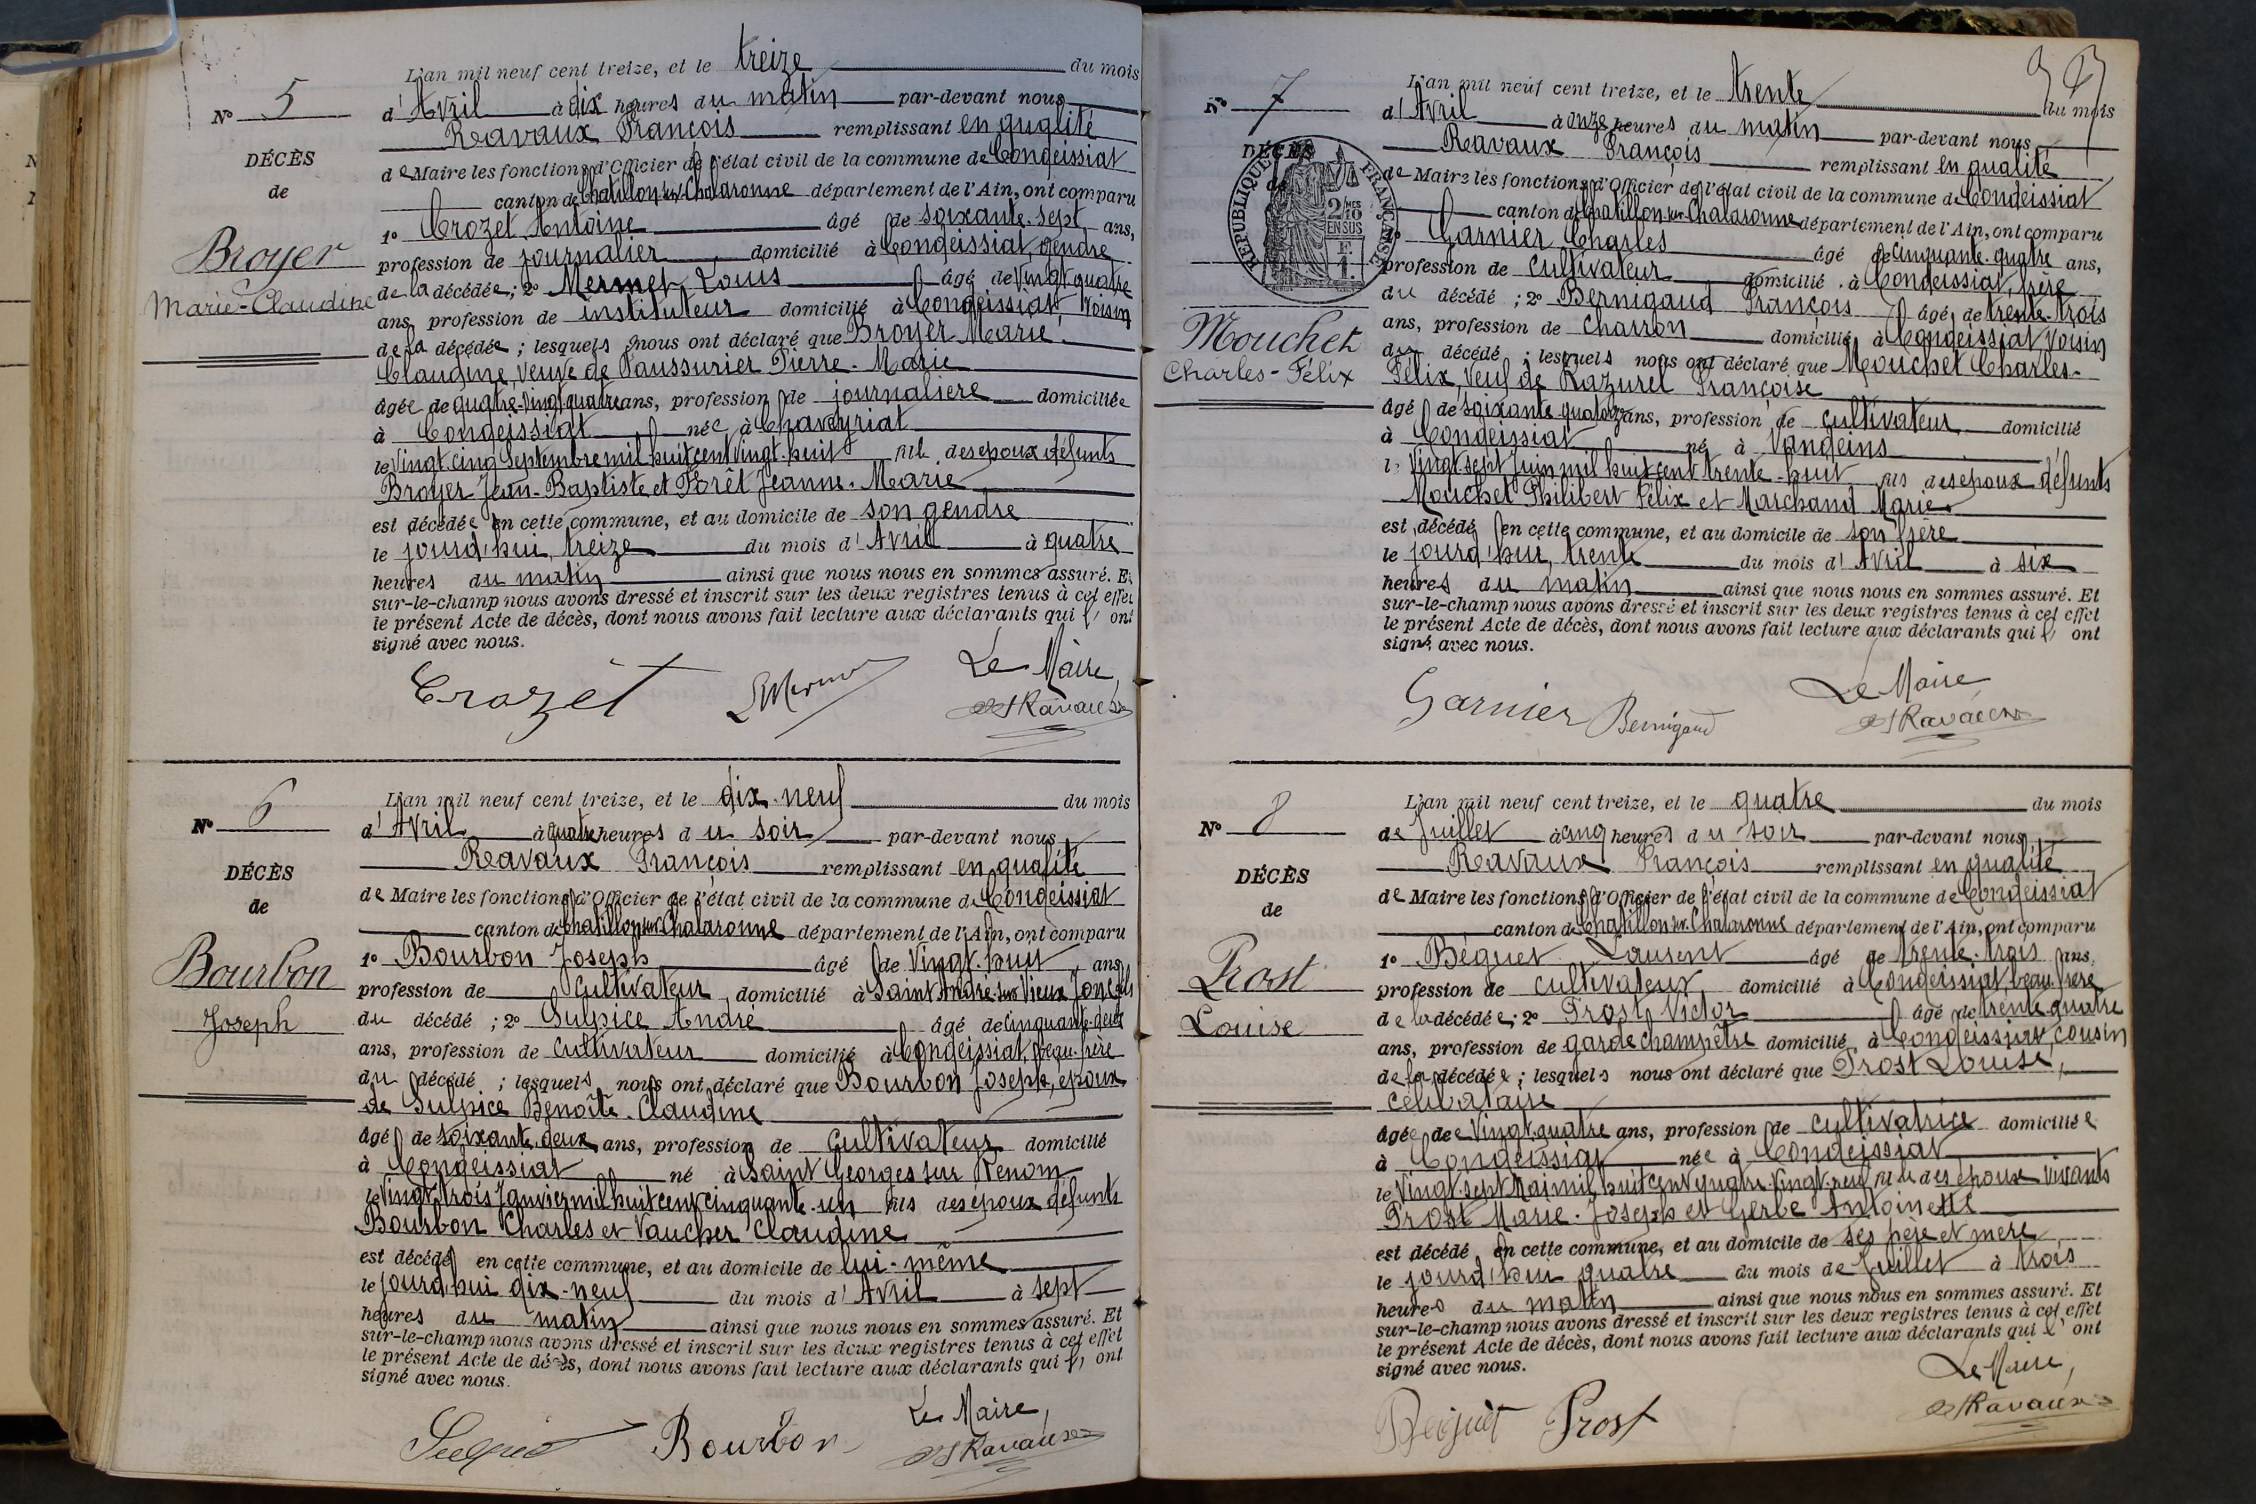 L'an mil neuf cent treize, et le treize du mois
N° 5 d'Avril à dix heures du matin par-devant nous
Ravaux François remplissant en qualité
DÉCÈS
de Maire les fonctions d'Officier de l'état civil de la commune de Condeissiat
de
canton de Chatillon sur Chalaronne département de l'Ain, ont comparu
1° Crozet Antoine âgé de soixante-sept ans,
Broyer
profession de journalier domicilié à Condeissiat, gendre
Marie-Claudine
de la décédée; 2° Mermet Louis âgé de vingt quatre
ans, profession de instituteur domicilié à Condeissiat, Voisin
de la décédée; lesquels nous ont déclaré que Broyer Marie
Claudine, veuve de Paussurier Pierre-Marie
âgée de quatre-vingt quatre ans, profession de journalière domiciliée
à Condeissiat née à Chaveyriat
le vingt cinq Septembre mil huit cent vingt-huit fille des époux défunts
Broyer Jean-Baptiste et Forêt Jeanne-Marie
est décédée en cette commune, et au domicile de son gendre
le jourd'hui treize du mois d'Avril à quatre
heures du matin ainsi que nous nous en sommes assuré. Et
sur-le-champ nous avons dressé et inscrit sur les deux registres tenus à cet effet
le présent Acte de décès, dont nous avons fait lecture aux déclarants qui l' ont
signé avec nous.
Le Maire,
Crozet LMermet Ravaux
L'an mil neuf cent treize, et le dix-neuf du mois
N° 6 d'Avril à quatre heures du soir par-devant nous
Ravaux François remplissant en qualité
DÉCÈS
de Maire les fonctions d'Officier de l'état civil de la commune de Condeissiat
de
canton de Chatillon sur Chalaronne département de l'Ain, ont comparu
1° Bourbon Joseph âgé de vingt-huit ans,
Bourbon
profession de Cultivateur domicilié à Saint André sur Vieux Jonc, fils
Joseph
du décédé; 2° Sulpice André âgé de cinquante-deux
ans, profession de cultivateur domicilié à Condeissiat, beau-frère
du décédé; lesquels nous ont déclaré que Bourbon Joseph, époux
de Sulpice Benoîte-Claudine
âgé de soixante deux ans, profession de cultivateur domicilié
à Condeissiat né à Saint Georges sur Renom
le vingt trois Janvier mil huit cent cinquante-un fils des époux défunts
Bourbon Charles et Vaucher Claudine
est décédé en cette commune, et au domicile de lui-même
le jourd'hui dix-neuf du mois d'Avril à sept
heures du matin ainsi que nous nous en sommes assuré. Et
sur-le-champ nous avons dressé et inscrit sur les deux registres tenus à cet effet
le présent Acte de décès, dont nous avons fait lecture aux déclarants qui l' ont
signé avec nous.
Le Maire,
Sulpice Bourbon Ravaux
L'an mil neuf cent treize, et le trente du mois
N° 7 d'Avril à onze heures du matin par-devant nous
Ravaux François remplissant en qualité
DÉCÈS
de Maire les fonctions d'Officier de l'état civil de la commune de Condeissiat
de
RÉPUBLIQUE FRANÇAISE
2/10 MES EN SUS
F. 1.
canton de Chatillon sur Chalaronne département de l'Ain, ont comparu
1° Garnier Charles âgé de cinquante-quatre ans,
profession de cultivateur domicilié à Condeissiat, frère
du décédé; 2° Bernigaud François âgé de trente-trois
Mouchet
ans, profession de charron domicilié à Condeissiat, Voisin
Charles-Félix
du décédé; lesquels nous ont déclaré que Mouchet Charles-
Félix, veuf de Razurel Françoise
âgé de soixante-quatorze ans, profession de cultivateur domicilié
à Condeissiat né à Vandeins
le vingt-sept Juin mil huit cent trente-huit fils des époux défunts
Mouchet Philibert Félix et Marchand Marie
est décédé en cette commune, et au domicile de son frère
le jourd'hui, trente du mois d'Avril à six
heures du matin ainsi que nous nous en sommes assuré. Et
sur-le-champ nous avons dressé et inscrit sur les deux registres tenus à cet effet
le présent Acte de décès, dont nous avons fait lecture aux déclarants qui l' ont
signé avec nous.
Le Maire
Garnier Bernigaud Ravaux
L'an mil neuf cent treize, et le quatre du mois
N° 8 de Juillet à cinq heures du soir par-devant nous
Ravaux François remplissant en qualité
DÉCÈS
de Maire les fonctions d'Officier de l'état civil de la commune de Condeissiat
de
canton de Chatillon sur Chalaronne département de l'Ain, ont comparu
1° Béguet Laurent âgé de trente-trois ans,
Prost
profession de cultivateur domicilié à Condeissiat, beau-frère
Louise
de la décédée; 2° Prost Victor âgé de trente-quatre
ans, profession de garde champêtre domicilié à Condeissiat cousin
de la décédée; lesquels nous ont déclaré que Prost Louise,
célibataire
âgée de vingt-quatre ans, profession de cultivatrice domiciliée
à Condeissiat née à Condeissiat
le vingt-sept Mai mil huit cent quatre-vingt-neuf fille des époux vivants
Prost Marie-Joseph et Gerbe Antoinette
est décédé en cette commune, et au domicile de ses père et mère
le jourd'hui quatre du mois de Juillet à trois
heures du matin ainsi que nous nous en sommes assuré. Et
sur-le-champ nous avons dressé et inscrit sur les deux registres tenus à cet effet
le présent Acte de décès, dont nous avons fait lecture aux déclarants qui l' ont
signé avec nous.
Le Maire,
Béguet Prost Ravaux